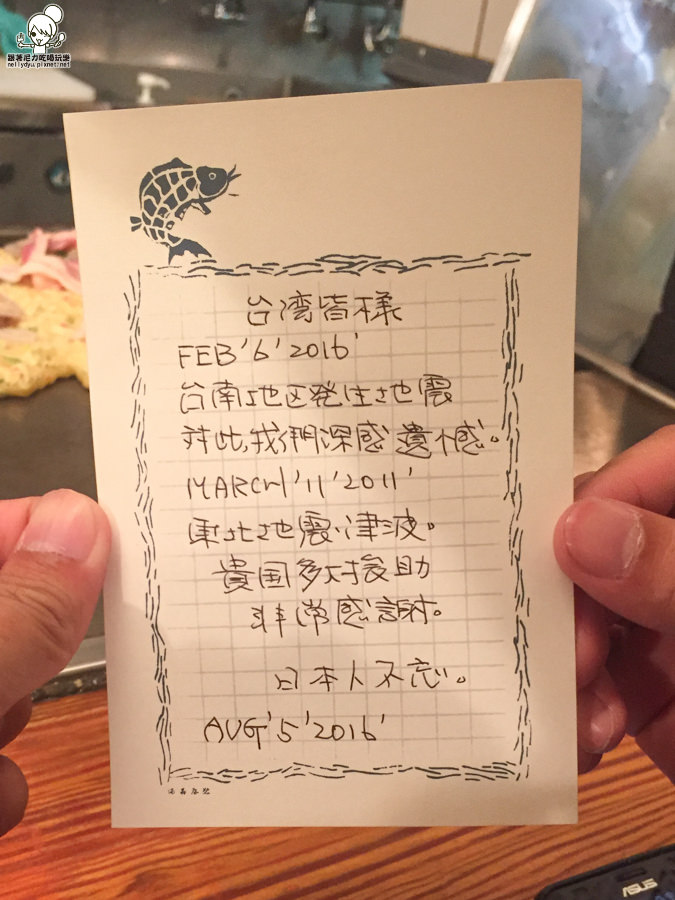 跟著尼力吃喝玩樂
nellydyu.pixnet.net
台湾皆様
FEB'6'2016'
台南地区発生地震
対此,我們深感遺憾。
MARCH'11'2011'
東北地震、津波。
貴国多大援助
非常感謝。
日本人不忘。
AUG'5'2016'
ASUS